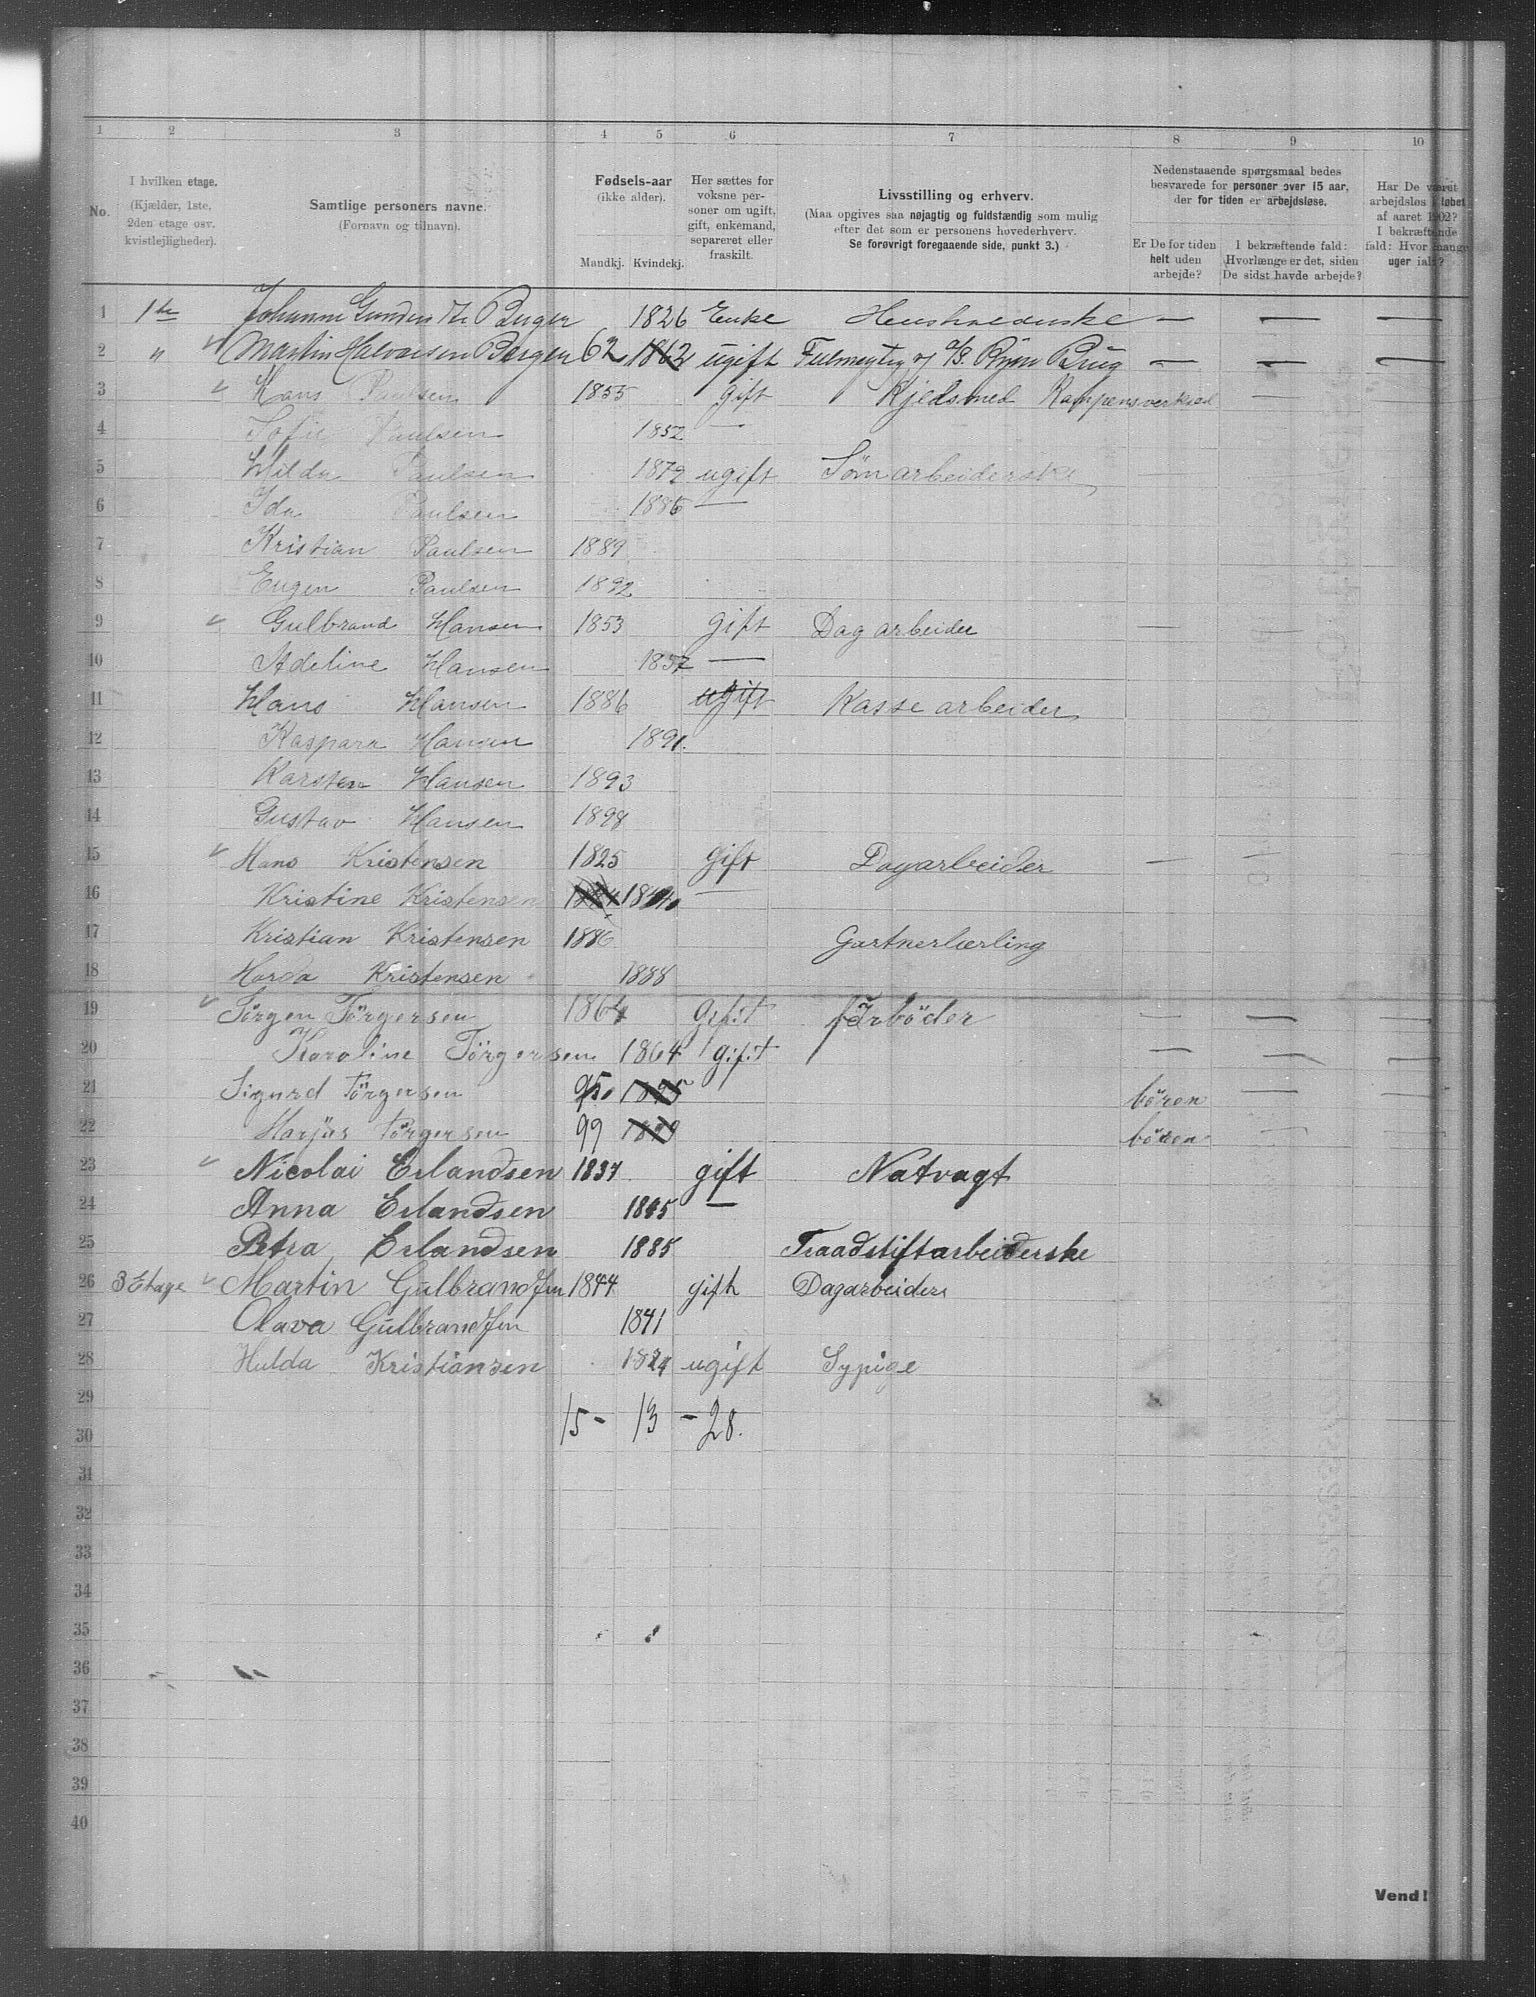 1 2 3 4 5 6 7 8 9 10
No.
I hvilken etage.
(Kjælder, 1ste,
2den etage osv.
kvistlejligheder).
Samtlige personers navne.
(Fornavn og tilnavn).
Fødsels-aar
(ikke alder).
Mandkj. Kvindekj.
Her sættes for
voksne per-
soner om ugift,
gift, enkemand,
separeret eller
fraskilt.
Livsstilling og erhverv.
(Maa opgives saa nøjagtig og fuldstændig som mulig
efter det som er personens hovederhverv.
Se forøvrigt foregaaende side, punkt 3.)
Nedenstaaende spørgsmaal bedes
besvarede for personer over 15 aar,
der for tiden er arbejdsløse.
Er De for tiden
helt uden
arbejde?
I bekræftende fald:
Hvorlænge er det, siden
De sidst havde arbejde?
Har De været
arbejdsløs i løbet
af aaret 1902?
I bekræftende
fald: Hvor mange
uger ialt?
1 1ste Johanne 1826 Enke — — —
2 " Martin Halvorsen Bergen 62 1862 ugift — — —
3 Hans Paulsen 1855 gift Kjedsmed Kampensverksed —
4 Sofie Paulsen 1852 —
5 Hilda Paulsen 1879 ugift Sömarbeiderske
6 Ida Paulsen 1885 —
7 Kristian Paulsen 1889
8 Eugen Paulsen 1892
9 Gulbrand Hansen 1853 gift Dagarbeider — —
10 Adeline Hansen 1857 —
11 Hans Hansen 1886 ugift Kassearbeider
12 Kaspara Hansen 1891.
13 Karsten Hansen 1893
14 Gustav Hansen 1898
15 Hans Kristensen 1825 Gift Dagarbeider — —
16 Kristine Kristensen —
17 Kristian Kristensen 1886 Gartnerlærling
18 Kristensen 1888
19 Törgersen 1864 Gifitförböder — — —
20 Karoline Törgersen 1864 gifit — — —
21 Sigurd Törgersen 95 1895 bören — —
22 Törgersen 99 1899 bören — —
23 Nicolai Erlandsen 1837 gift Natvagt
24 Anna Erlandsen 1845 —
25 Petra Erlandsen 1885 Traadstiftarbeiderske
26 3 Etage Martin Gulbrandsen 1844 gift Dagarbeider
27 Olava Gulbrandsen 1841
28 Hulda Kristiansen ugift Sypige
29
30 15 - 13 - 28.
31
32
33
34
35
36
37
38
39
40
Vend!